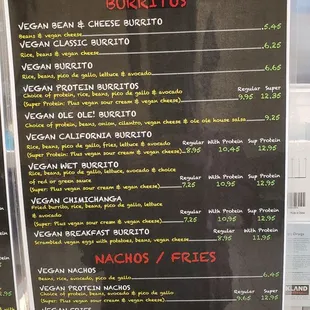 BURRITOS
VEGAN BEAN & CHEESE BURRITO 5.45
Beans & vegan cheese
VEGAN CLASSIC BURRITO 6.25
Rice, beans & vegan cheese
VEGAN BURRITO 6.65
Rice, beans, pico de gallo, lettuce & avocado
VEGAN PROTEIN BURRITOS Regular Super
Choice of protein, rice, beans, pico de gallo & avocado 9.95 12.35
(Super Protein: Plus vegan sour cream & vegan cheese)
VEGAN OLE OLE! BURRITO 9.25
Choice of protein, beans, onion, cilantro, vegan cheese & ole ole house salsa
VEGAN CALIFORNIA BURRITO Regular With Protein Sup Protein
Rice, beans, pico de gallo, fries, lettuce & avocado 8.95 10.45 12.95
(Super: Plus vegan sour cream & vegan cheese)
VEGAN WET BURRITO Regular With Protein Sup Protein
Rice, beans, pico de gallo, lettuce, avocado & choice
of red or green sauce 7.25 10.95 12.95
(Super: Plus vegan sour cream & vegan cheese)
VEGAN CHIMICHANGA Regular With Protein Sup Protein
Fried burrito, rice, beans, pico de gallo, lettuce
& avocado 7.25 10.95 12.95
(Super: Plus vegan sour cream & vegan cheese)
VEGAN BREAKFAST BURRITO Regular With Protein
Scrambled vegan eggs with potatoes, beans, vegan cheese 8.95 11.95
NACHOS / FRIES
VEGAN NACHOS 6.45
Beans, rice, avocado, pico de gallo
VEGAN PROTEIN NACHOS Regular Super
Choice of protein, beans, avocado & pico de gallo 9.65 12.95
(Super: Plus vegan sour cream & vegan cheese)
VEGAN FRIES